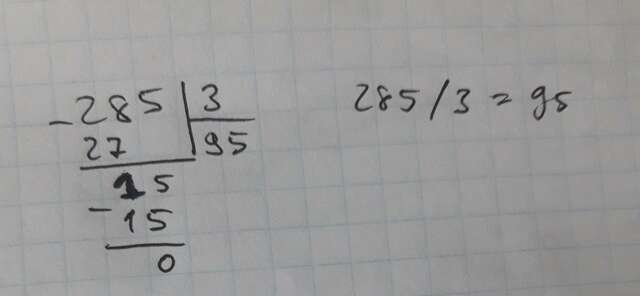 -285 | 3 285/3 = 95
27 | 95
15
-15
0